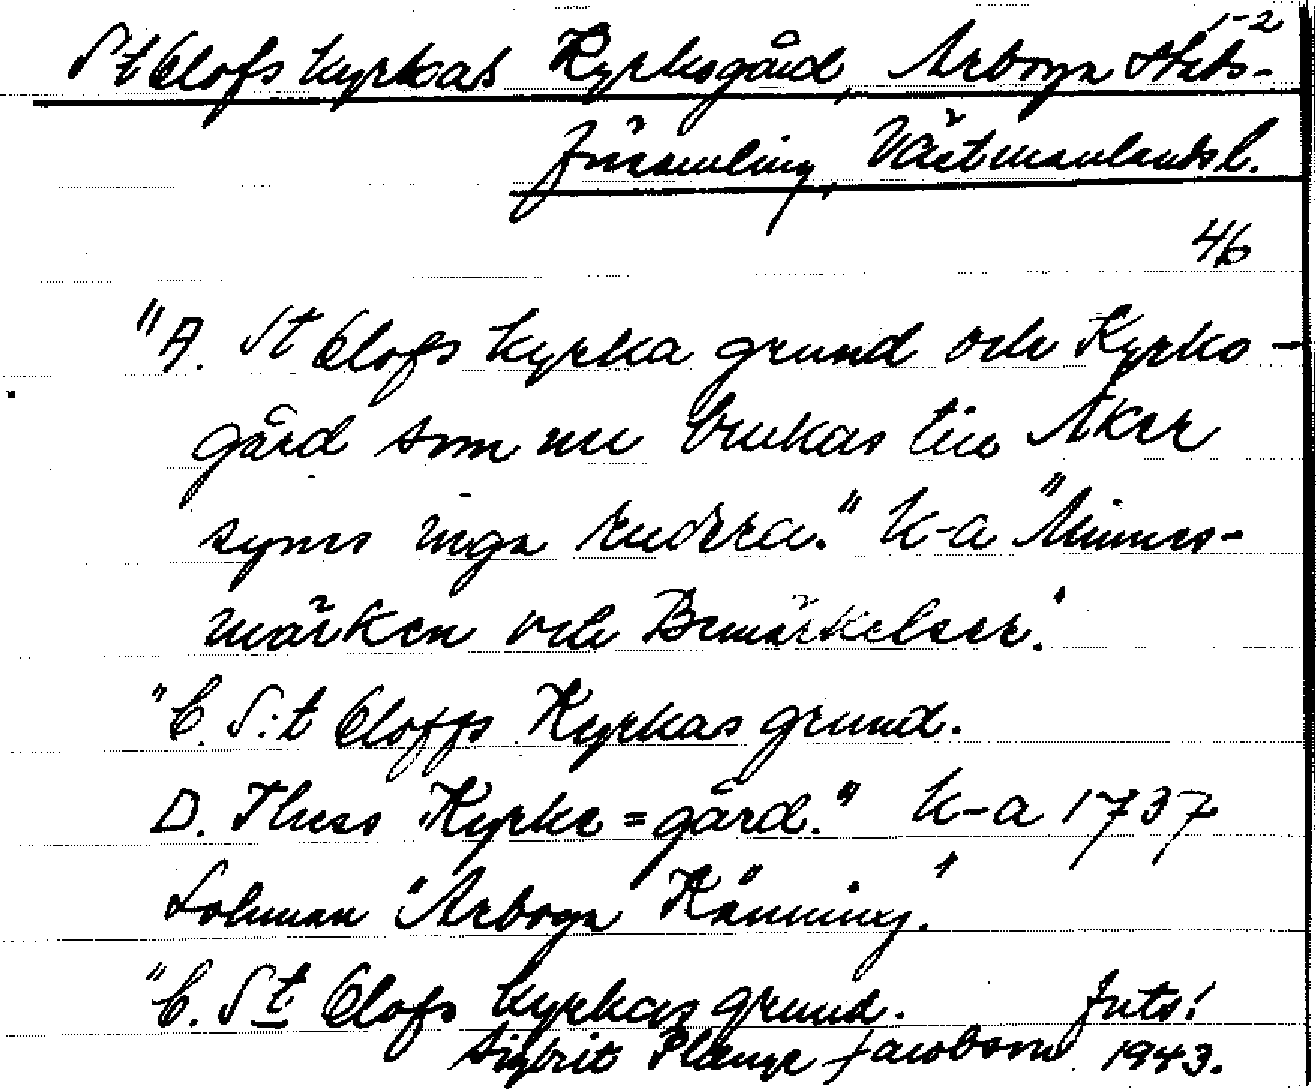 1-2
St Olofs kyrkas Kyrkogård, Arboga Stads-
församling, Västmanlands l.
46
"A. St Olofs kyrka grund och Kyrko-
gård som nu brukas till Åker
synes inga rudera." K-a "Minnes-
märken och Bemärkelser."
"C. S:t Oloffs Kyrkas grund.
D. Thess Kyrke=gård." K-a 1737
Lohman "Arboga Känning."
"C. St Olofs kyrkas grund. forts!
Sigbrit Plænge Jacobson 1943.